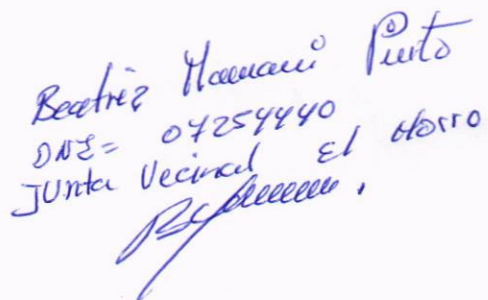 Beatriz Mamani Pinto
DNI= 07254440
Junta Vecinal El Morro